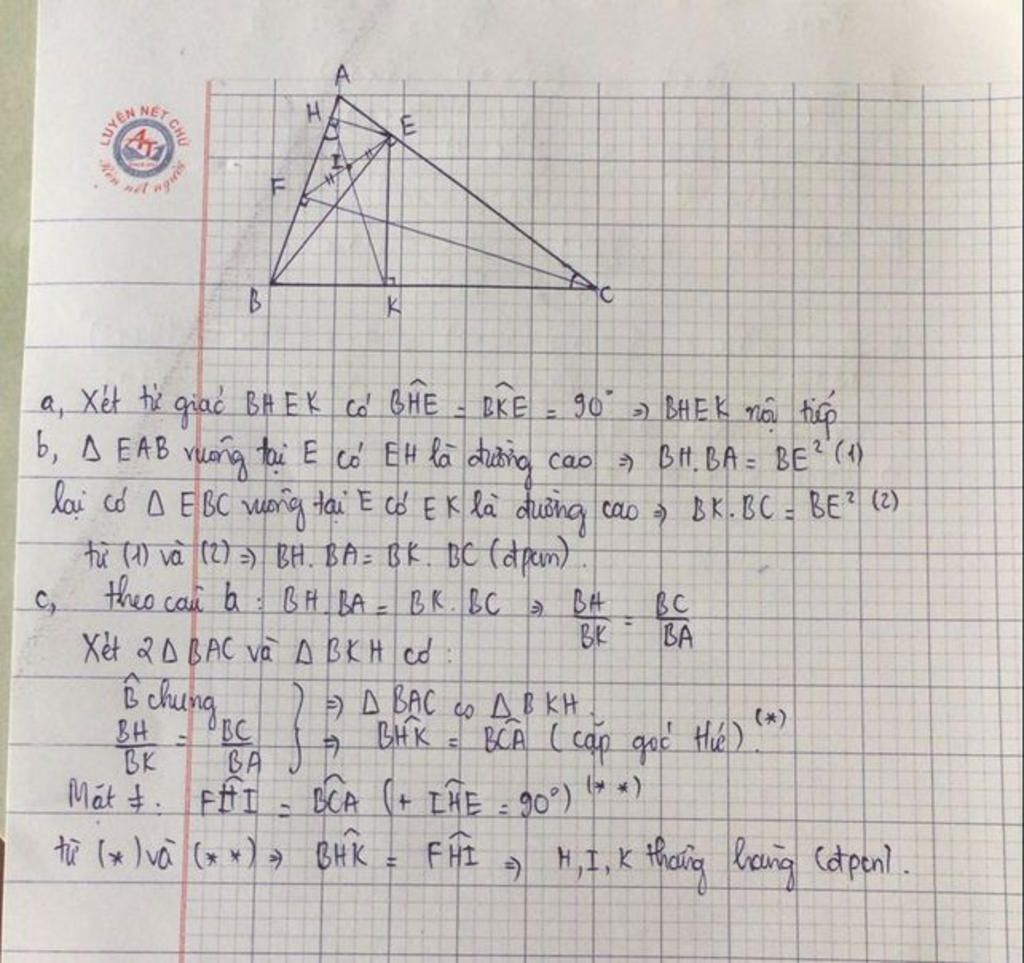 LUYỆN NÉT CHỮ
AT
Rèn nết người
A
H
E
I
F
B
K
C
a, Xét tứ giác BHEK có BĤE = BK̂E = 90° => BHEK nội tiếp
b, Δ EAB vuông tại E có EH là đường cao => BH.BA = BE² (1)
lại có Δ EBC vuông tại E có EK là đường cao => BK.BC = BE² (2)
từ (1) và (2) => BH.BA = BK.BC (đpcm).
c, theo câu b : BH.BA = BK.BC => BH/BK = BC/BA
Xét 2Δ BAC và Δ BKH có :
B̂ chung } => Δ BAC ∽ Δ BKH.
BH/BK = BC/BA } => BĤK = BĈA (cặp góc tứ). (*)
Mặt ≠. FĤI = BĈA (+ IĤE = 90°) (**)
từ (*) và (**) => BĤK = FĤI => H, I, K thẳng hàng (đpcm).